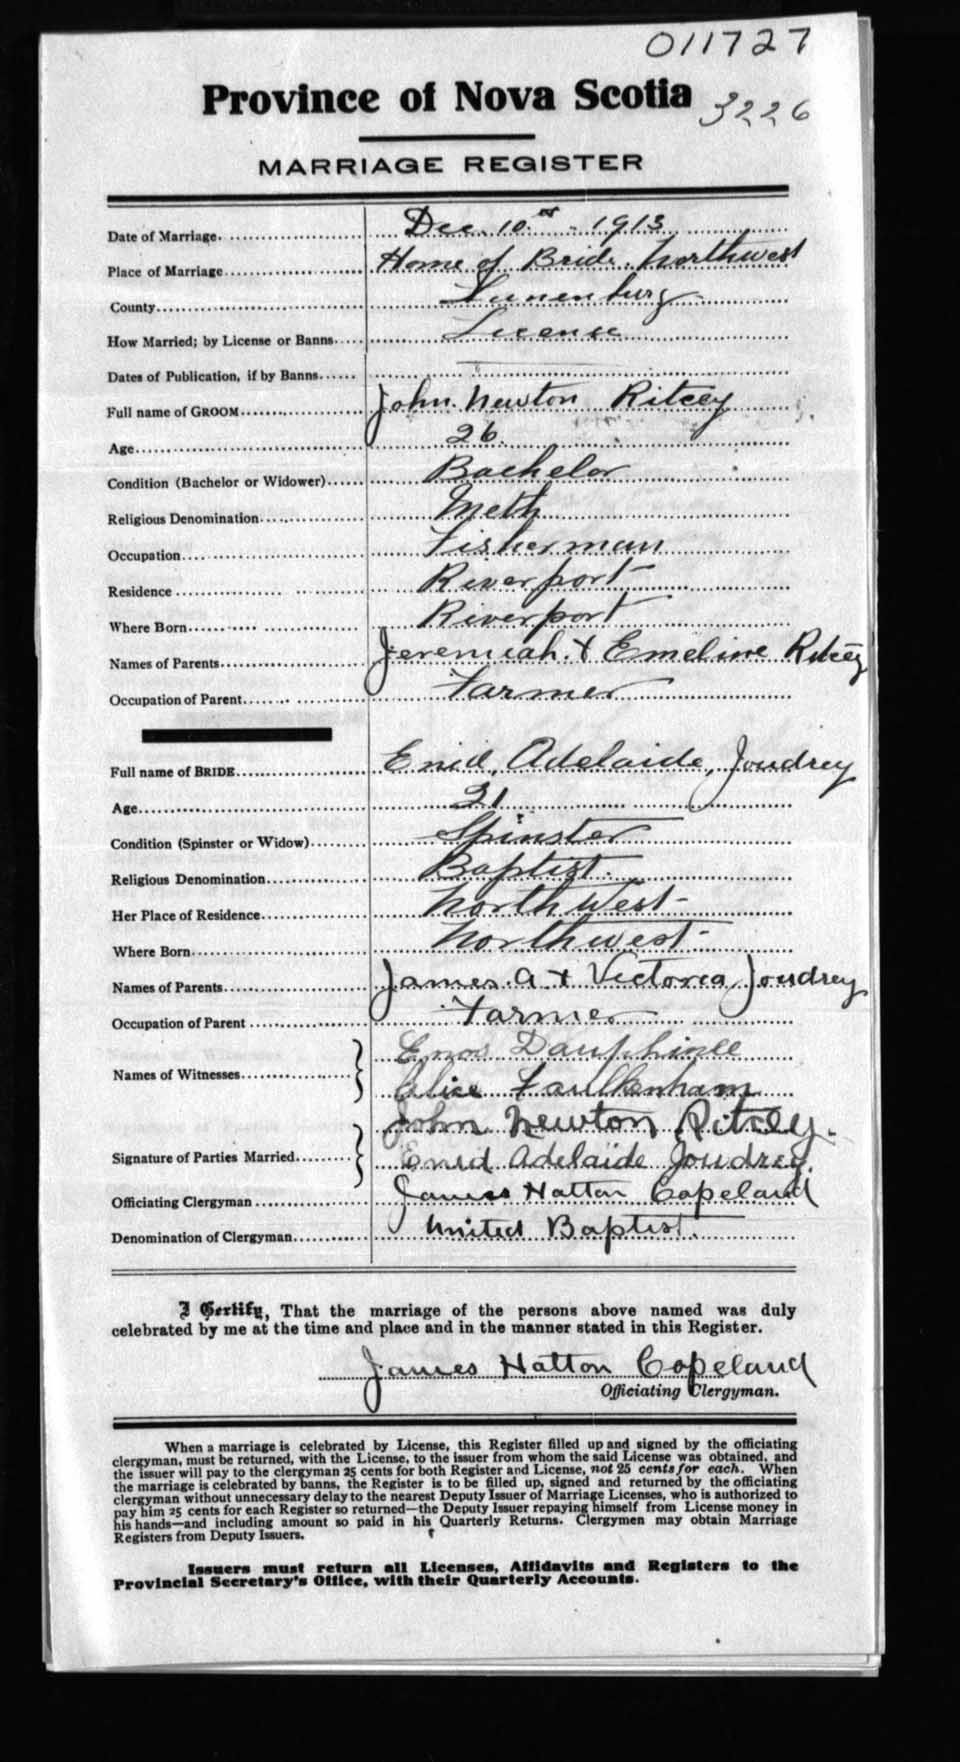 011727
Province of Nova Scotia 3226
MARRIAGE REGISTER
Date of Marriage. Dec. 10th 1913
Place of Marriage Home of Bride. Northwest
County Lunenburg
How Married; by License or Banns License
Dates of Publication, if by Banns
Full name of GROOM John Newton Ritcey
Age 26.
Condition (Bachelor or Widower) Bachelor
Religious Denomination Meth
Occupation Fisherman
Residence Riverport
Where Born Riverport
Names of Parents Jeremiah + Emeline Ritcey
Occupation of Parent Farmer
Full name of BRIDE Enid, Adelaide, Joudrey
Age 21
Condition (Spinster or Widow) Spinster
Religious Denomination Baptist.
Her Place of Residence Northwest
Where Born Northwest
Names of Parents James. A + Victoria Joudrey
Occupation of Parent Farmer
Names of Witnesses Enos Dauphinee
Alice Faulkenham
Signature of Parties Married John Newton Ritcey.
Enid Adelaide Joudrey.
Officiating Clergyman James Hatton Copeland
Denomination of Clergyman United Baptist.
I Certify, That the marriage of the persons above named was duly
celebrated by me at the time and place and in the manner stated in this Register.
James Hatton Copeland
Officiating Clergyman.
When a marriage is celebrated by License, this Register filled up and signed by the officiating
clergyman, must be returned, with the License, to the issuer from whom the said License was obtained, and
the issuer will pay to the clergyman 25 cents for both Register and License, not 25 cents for each. When
the marriage is celebrated by banns, the Register is to be filled up, signed and returned by the officiating
clergyman without unnecessary delay to the nearest Deputy Issuer of Marriage Licenses, who is authorized to
pay him 25 cents for each Register so returned—the Deputy Issuer repaying himself from License money in
his hands—and including amount so paid in his Quarterly Returns. Clergymen may obtain Marriage
Registers from Deputy Issuers.
Issuers must return all Licenses, Affidavits and Registers to the
Provincial Secretary's Office, with their Quarterly Accounts.